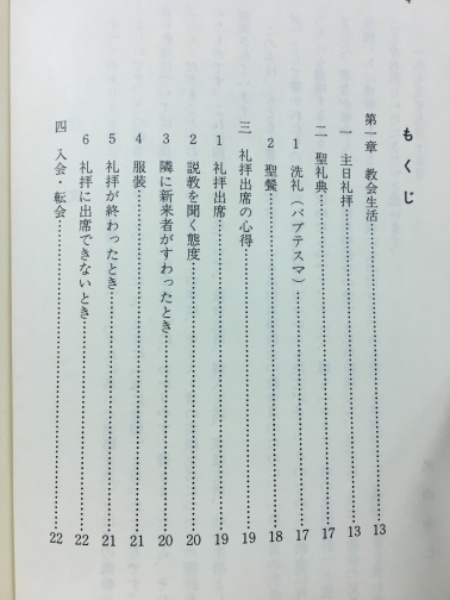 もくじ
第一章 教会生活……………………13
一 主日礼拝……………………13
二 聖礼典……………………17
1 洗礼(バプテスマ)……………………17
2 聖餐……………………18
三 礼拝出席の心得……………………19
1 礼拝出席……………………19
2 説教を聞く態度……………………20
3 隣に新来者がすわったとき……………………20
4 服装……………………21
5 礼拝が終わったとき……………………21
6 礼拝に出席できないとき……………………22
四 入会・転会……………………22